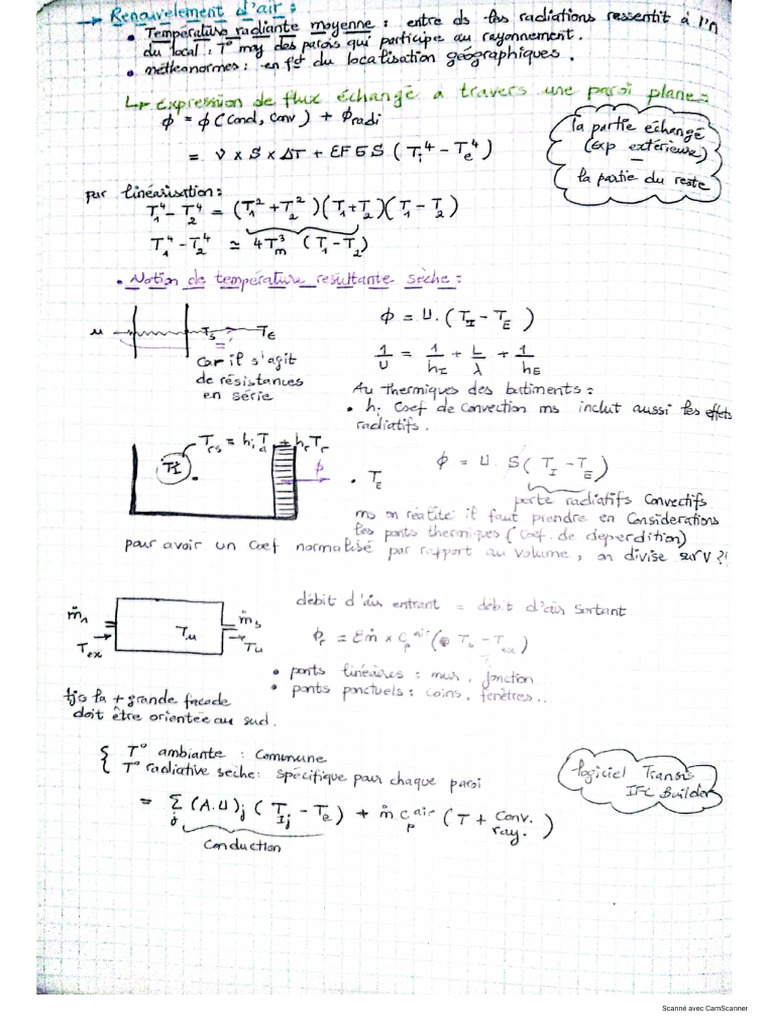 → Renouvelement d'air :
• Température radiante moyenne : entre ds les radiations ressentit à l'n
du local : T° moy des parois qui participe au rayonnement.
• météonormes : en fct du localisation géographiques.
↳ Expression de flux échangé a travers une paroi plane :
ϕ = ϕ(Cond, Conv) + ϕradi
= U × S × ΔT + EFGS (Ti⁴ - Te⁴)
la partie échangé
(exp extérieure)
—
la partie du reste
par linéarisation :
T₁⁴ - T₂⁴ = (T₁² + T₂²)(T₁ + T₂)(T₁ - T₂)
T₁⁴ - T₂⁴ ≃ 4Tm³ (T₁ - T₂)
• Notion de température resultante sèche :
Ts TE
car il s'agit
de résistances
en série
ϕ = U. (TI - TE)
1/U = 1/hI + L/λ + 1/hE
Au thermiques des batiments :
• hi Coef de Convection ms inclut aussi les effets
radiatifs.
Trs = hiTa + hrTr
TI
ϕ
• TE
ϕ = U. S(TI - TE)
perte radiatifs Convectifs
ms en réalité il faut prendre en Considerations
les ponts thermiques (Coef. de deperdition)
pour avoir un Coef normalisé par rapport au volume, on divise sur V ?!
ṁ₁
Tex
Tu
ṁs
Tu
débit d'air entrant = débit d'air sortant
ϕr = Εṁ × Cp air (Ts - Tex)
• ponts linéaires : mur, jonction
• ponts ponctuels : coins, fenêtres..
tjs la + grande facade
doit être orientée au sud.
{ T° ambiante : Commune
T° radiative seche : spécifique pour chaque paroi
= Σj (A.U)j (TIj - Te) + ṁ Cp air (T + Conv. ray.)
Conduction
logiciel Trnsys
IFC Builder
Scanné avec CamScanner